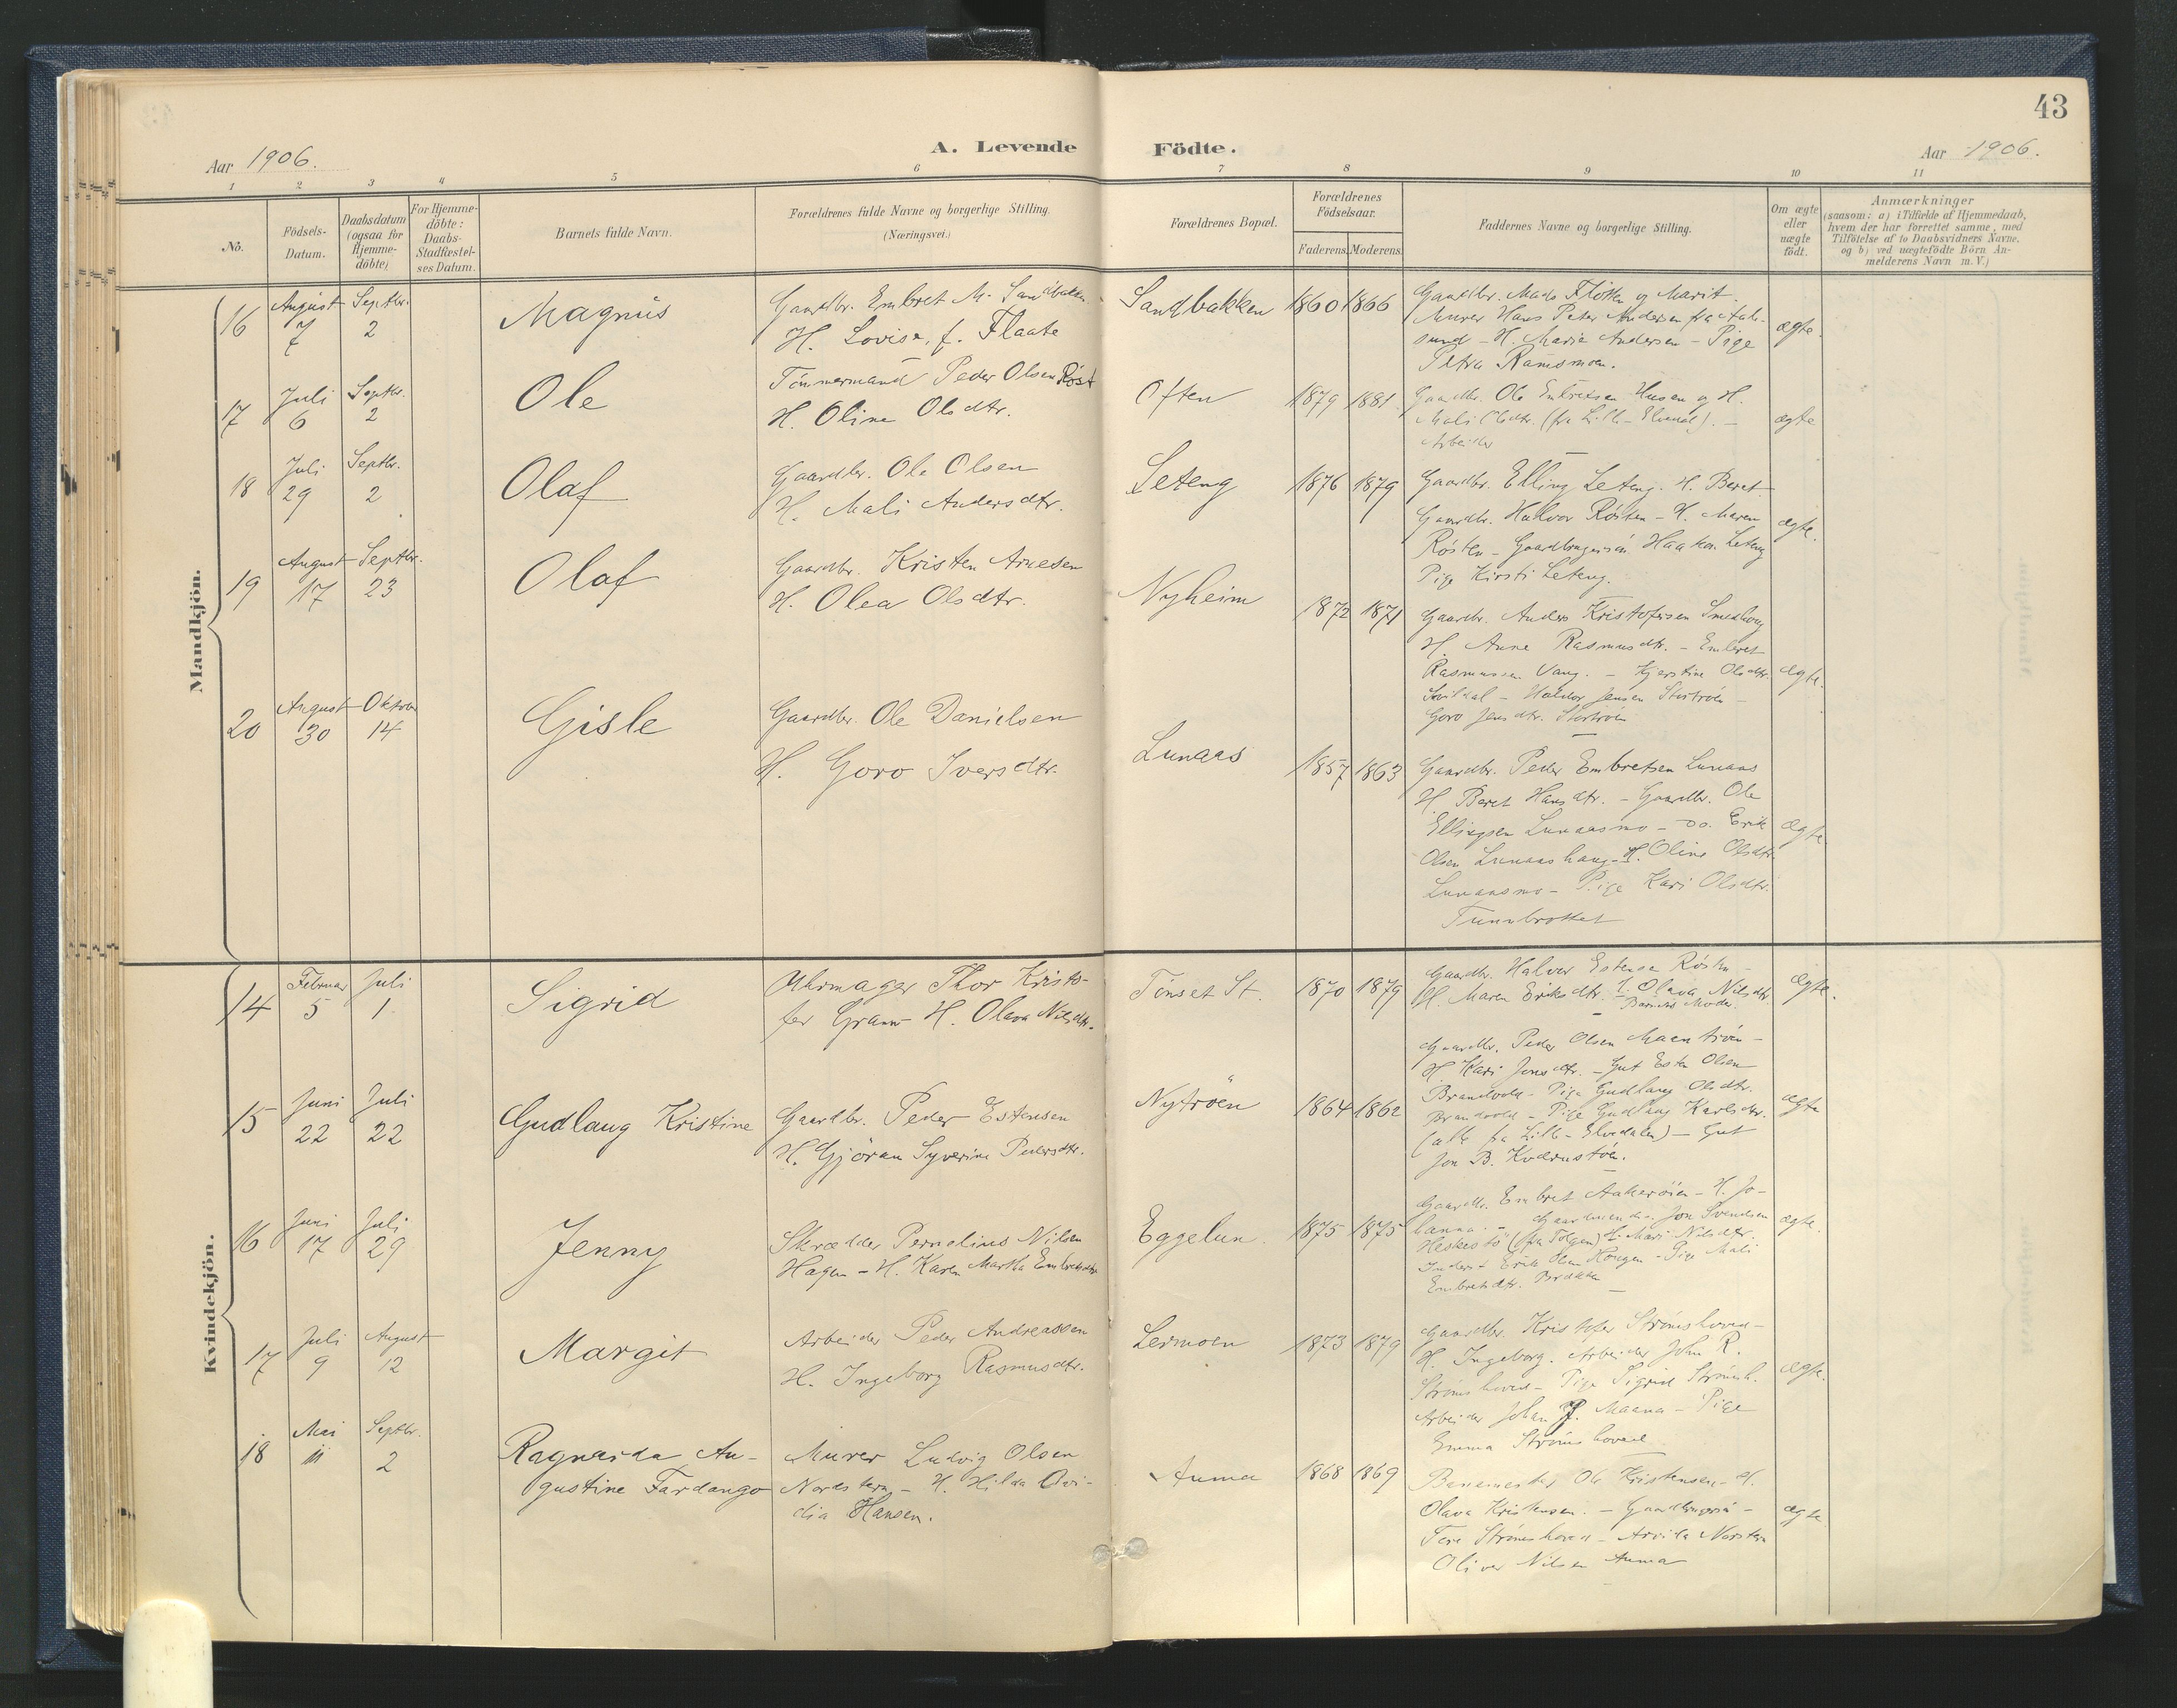 43
Aar 1906.
A. Levende Födte.
Aar 1906.
1 2 3 4 5 6 7 8 9 10 11
No.
Födsels-
Datum.
Daabsdatum
(ogsaa for
Hjemme-
döbte)
For Hjemme-
döbte:
Daabs-
Stadfæstel-
ses Datum.
Barnets fulde Navn.
Forældrenes fulde Navne og borgerlige Stilling.
(Næringsvei.)
Forældrenes Bopæl.
Forældrenes
Födselsaar.
Faderens. Moderens.
Faddernes Navne og borgerlige Stilling.
Om ægte
eller
uægte
födt.
Anmærkninger
(saasom: a) i Tilfælde af Hjemmedaab,
hvem der har forrettet samme, med
Tilföielse af to Daabsvidners Navne,
og b) ved uægtefödte Börn An-
melderens Navn m.V.)
Mandkjön.
16
August
7
Septbr.
2
Magnus
Gaardbr. Embret M. Sandbakken
H. Lovise, f. Flaate
Sandbakken
1860 1866
Gaardbr. Mads Flötten og Marit.
Murer Hans Peter Andersen fra Aale-
sund - H. Maria Andersen - Pige
Petra Ramsmoen.
ægte.
17
Juli
6
Septbr.
2
Ole
Tömmermand Peder Olsen Röst
H. Oline Olsdtr.
Often
1879 1881
Gaardbr. Ole Embretsen Husan og H.
Mali Olsdtr. (fra Lille-Elvedal). -
Arbeider
ægte
18
Juli
29
Septbr.
2
Olaf
Gaardbr. Ole Olsen
H. Mali Andersdtr.
Leteng
1876 1879
Gaardbr. Elling Leteng. H. Beret
Gaardbr. Halvor Rösten - H. Maren
Rösten - Gaardbrugersön Haakon Leteng
Pige Kirsti Leteng.
ægte.
19
August
17
Septbr.
23
Olaf
Gaardbr. Kristen Arnesen
H. Olea Olsdtr.
Nyheim
1872 1871
Gaardbr. Anders Kristofersen Smedhaug
H. Anne Rasmusdtr. - Embret
Rasmussen Vang. - Kjerstine Olsdtr.
- Haldor Jensen Stortröen -
Goro Jensdtr. Stortröen
ægte.
20
August
30
Oktbr
14
Gisle
Gaardbr. Ole Danielsen
H. Goro Iversdtr.
Lunaas
1857 1863
Gaardbr. Peder Embretsen Lunaas
H. Beret Hansdtr. - Gaardbr. Ole
Ellingsen Lunaasmo - Do. Erik
Olsen Lunaashaug - H. Oline Olsdtr.
Lunaasmo - Pige Kari Olsdtr.
Tunnbrottet
ægte
Kvindekjön.
14
Februar
5
Juli
1
Sigrid
Uhrmager Thor Kristo-
fer Gram - H. Olava Nilsdtr.
Tönset St.
1870 1879
Gaardbr. Halvor Estensen Rösten -
H. Maren Eriksdtr. - H. Olava Nilsdtr.
Barnets Moder.
ægte.
15
Juni
22
Juli
22
Gudlaug Kristine
Gaardbr. Peder Estensen
H. Gjöran Syverine Pedersdtr.
Nytröen
1864 1862
Gaardbr. Peder Olsen Maantröen -
H. Kari Jonsdtr. - Gut Esten Olsen
Brandvold - Pige Gudlaug Olsdtr.
Brandvold - Pige Gudlaug Karlsdtr.
(alle fra Lille-Elvedalen) - Gut
Jon B. Kværnstöen.
ægte
16
Juni
17
Juli
29
Jenny
Skrædder Pernelius Nilsen
Hagen - H. Karen Martha Embretsdtr
Eggelun
1875 1875
Gaardbr. Embret Aakeröien - H. Jo-
hanna. - Jon Svendsen
(fra Tolgen) H. Mari Nilsdtr.
Inderst Erik Olsen Haugen - Pige Mali
Embretsdtr. Brækken
ægte.
17
Juli
9
August
12
Margit
Arbeider Peder Andreassen
H. Ingeborg Rasmusdtr.
Leirmoen
1873 1879
Gaardbr. Kristofer Strömshoved -
H. Ingeborg. Arbeider John R.
Strömshoved - Pige Sigrid Strömsh.
Arbeider Johan P. Maana - Pige
Emma Strömshoved
ægte.
18
Mai
11
Septbr.
2
Ragnarda Au-
gustine Fardango
Murer Ludvig Olsen
Nordstern - H. Hilda Ovi-
dia Hansen.
Auma
1868 1869
Banemester Ole Kristensen - H.
Olava Kristensen. - Gaardbrugersön -
Tore Strömshoved - Arvida Norstern
Oliver Nilsen Auma
ægte